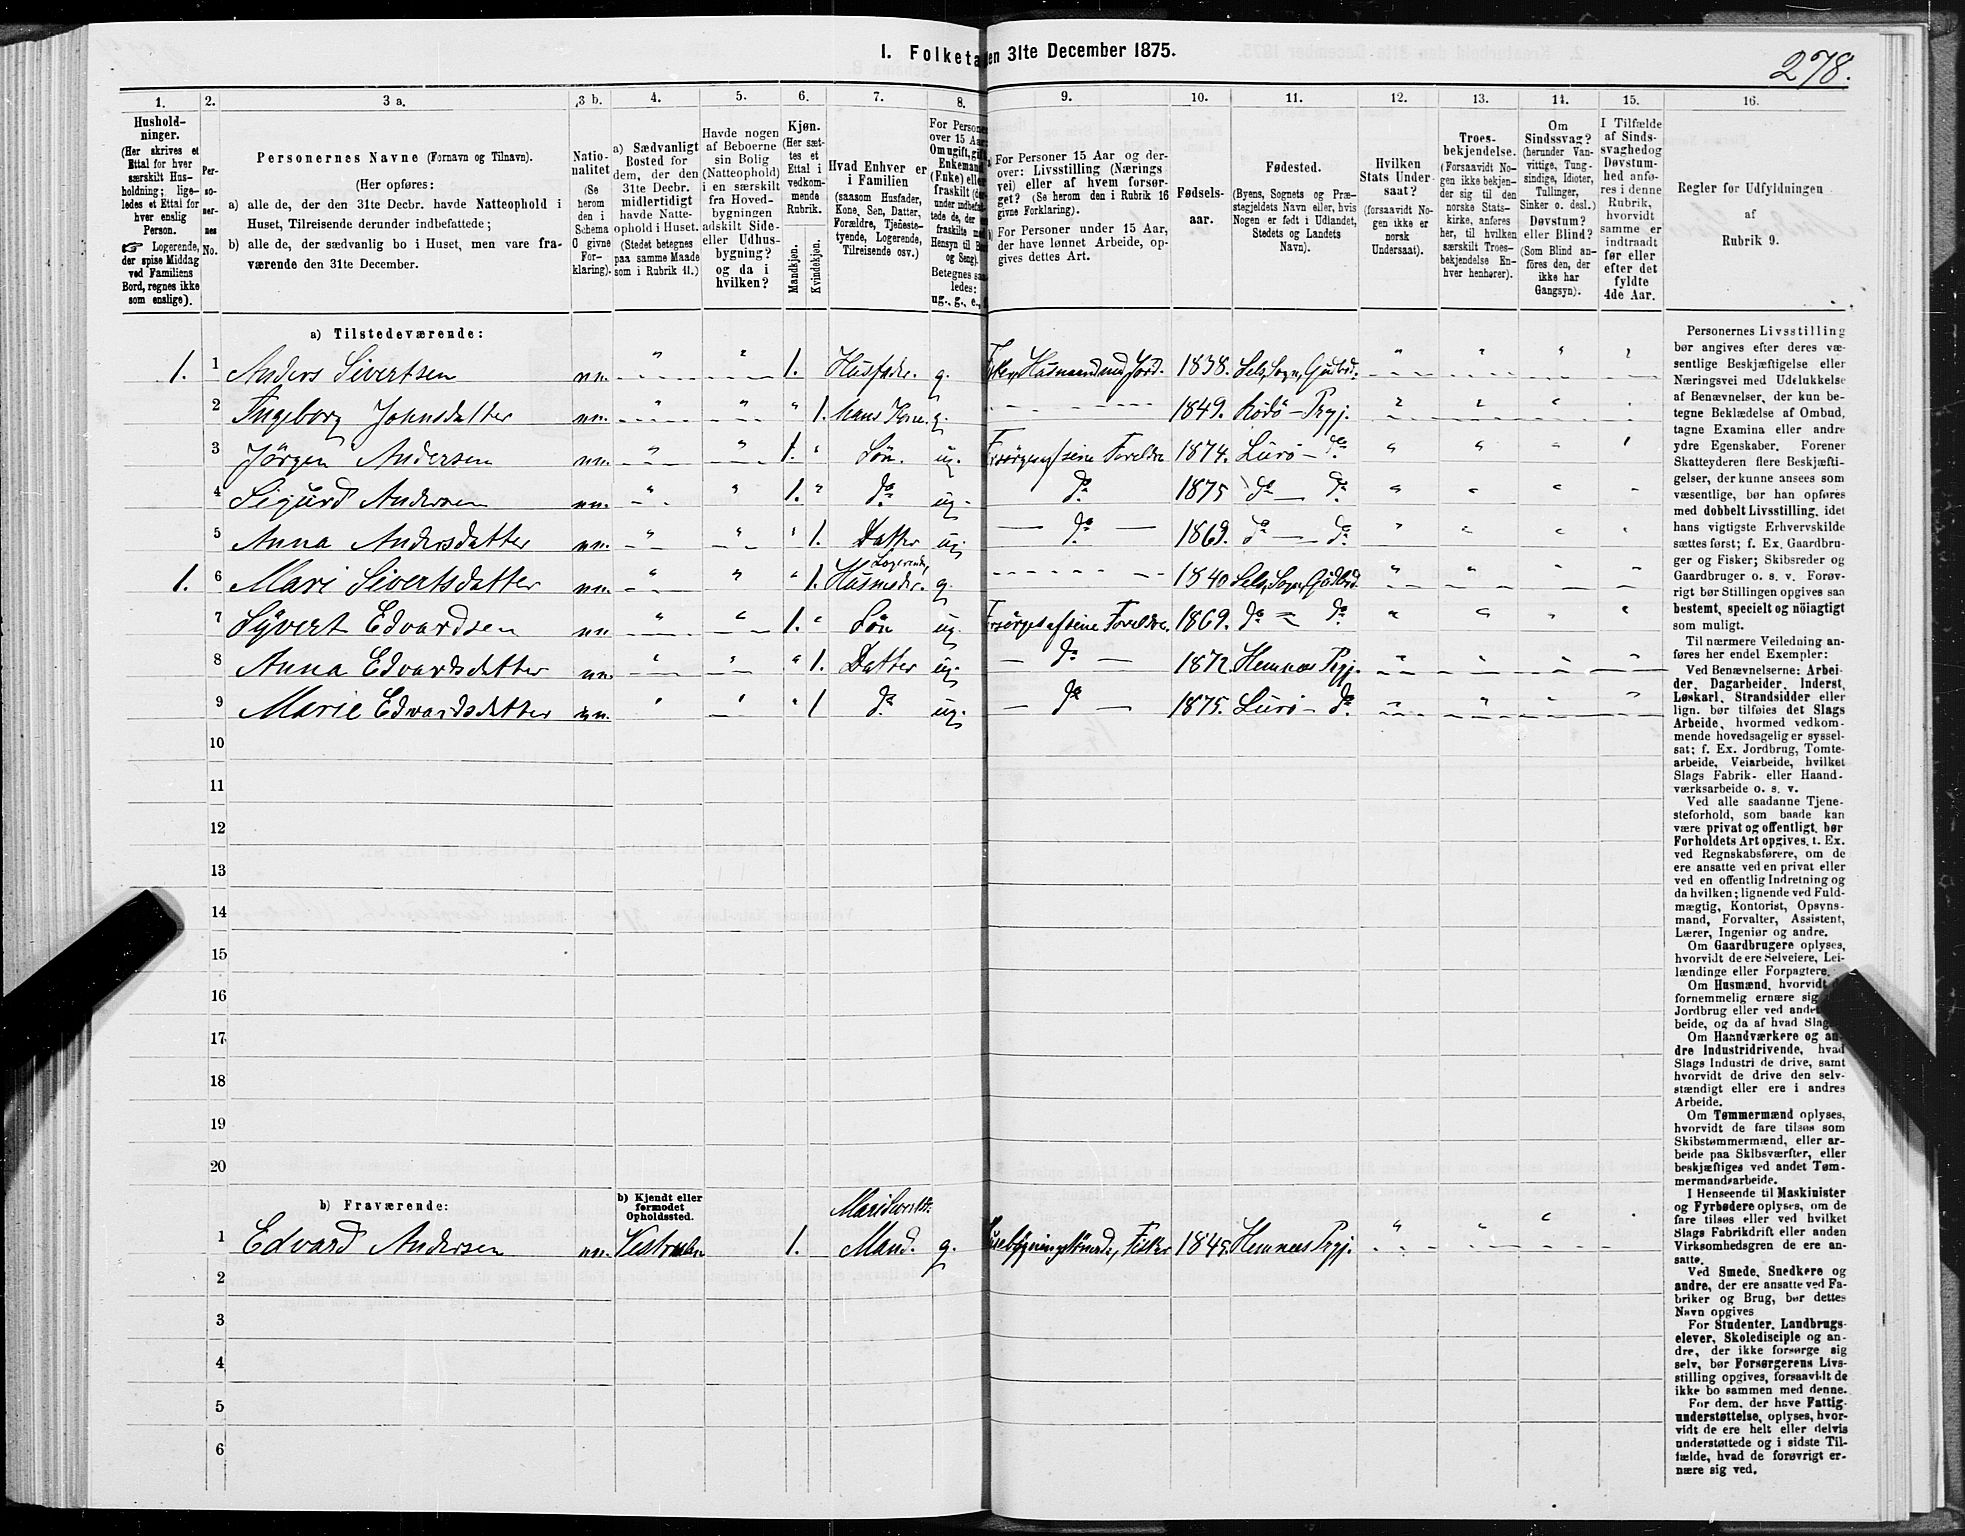 278.
I. Folketa
en 31te December 1875.
1.
2.
3 a.
3 b.
4.
5.
6.
7.
8.
9.
10.
11.
12.
13.
14.
15.
16.
Hushold-
ninger.
(Her skrives et
Ettal for hver
særskilt Hus-
holdning; lige-
ledes et Ettal for
hver enslig
Person.
☞ Logerende,
der spise Middag
ved Familiens
Bord, regnes ikke
som enslige).
Per-
so-
ner-
nes
No.
Personernes Navne (Fornavn og Tilnavn).
(Her opføres:
a) alle de, der den 31te Decbr. havde Natteophold i
Huset, Tilreisende derunder indbefattede;
b) alle de, der sædvanlig bo i Huset, men vare fra-
værende den 31te December.
Natio-
nalitet
(Se
herom
den i
Schema
O givne
For-
klaring).
a) Sædvanligt
Bosted for
dem, der den
31te Decbr.
midlertidigt
havde Natte-
ophold i Huset.
(Stedet betegnes
paa samme Maade
som i Rubrik 11.)
Havde nogen
af Beboerne
sin Bolig
(Natteophold)
i en særskilt
fra Hoved-
bygningen
adskilt Side-
eller Udhus-
bygning?
og da i
hvilken?
Kjøn.
(Her sæt-
tes et
Ettal i
vedkom-
mende
Rubrik.
Mandkjøn.
Kvindekjøn.
Hvad Enhver er
i Familien
(saasom Husfader,
Kone, Søn, Datter,
Forældre, Tjeneste-
tyende, Logerende,
Tilreisende osv.)
For Persone
over 15 Aar
Om ugift, gift
Enkemand
(Enke) elle
fraskilt (de
under indbefat-
tede de, der
fraskilte m
Hensyn til B
og Seng).
Betegnes saa
ledes:
ug., g., e.,
a) For Personer 15 Aar og der-
over: Livsstilling (Nærings
vei) eller af hvem forsør-
get? (Se herom den i Rubrik 16
givne Forklaring).
For Personer under 15 Aar,
der have lønnet Arbeide, op-
gives dettes Art.
Fødsels-
aar.
Fødested.
(Byens, Sognets og Præ-
stegjeldets Navn eller, hvis
Nogen er født i Udlandet,
Stedets og Landets
Navn).
Hvilken
Stats Under
saat?
(forsaavidt No-
gen ikke er
norsk
Undersaat).
Troes-
bekjendelse.
(Forsaavidt No-
gen ikke bekjen-
der sig til den
norske Stats-
kirke, anføres
her, til hvilken
særskilt Troes-
bekjendelse En-
hver henhører).
Om
Sindssvag?
(herunder Van-
vittige, Tung-
sindige, Idioter,
Tullinger,
Sinker o. desl.)
Døvstum?
eller Blind?
(Som Blind an-
føres den, der
ikke har
Gangsyn).
I Tilfælde
af Sinds-
svaghed og
Døvstum-
hed anfø-
res i denne
Rubrik,
hvorvidt
samme er
indtraadt
før eller
efter det
fyldte
4de Aar.
Regler for Udfyldningen
af
Rubrik 9.
a) Tilstedeværende:
1. 1 Anders Sivertsen nn. 1. Husfader. g. Husmand med Jord. 1838. Sels Sogn, Gudbd.
2 Ingeborg Johnsdatter nn. 1. Hans Kone. g. 1849. Rödö Prgj.
3 Jörgen Andersen nn. 1. Sön. ug. Forsörges af sine Foreldre 1874. Lurö do
4 Sigurd Andersen nn. 1. do ug. do 1875 do do
5 Anna Andersdatter nn. 1. Datter ug. do 1869. do do
Logerende,
1. 6 Mari Sivertsdatter nn. 1. g. 1840 Sels Sogn, Gudbd.
7 Syvert Edvardsen nn. 1. Sön ug. Forsörges af sine Foreldre. 1869. do do
8 Anna Edvardsdatter nn. 1. Datter ug. do 1872 Hemnæs Prgj.
9 Marie Edvardsdatter nn. 1 do ug. do 1875. Lurö do
10
11
12
13
14
15
16
17
18
19
20
b) Fraværende:
b) Kjendt eller
formodet
Opholdssted.
1 Edvard Andersen nn. 1. Mand. g. Fisker 1845. Hemnæs Prgj.
2
3
4
5
6
Personernes Livsstilling
bør angives efter deres væ-
sentlige Beskjæftigelse eller
Næringsvei med Udelukkelse
af Benævnelser, der kun be-
tegne Beklædelse af Ombud,
tagne Examina eller andre
ydre Egenskaber. Forener
Skatteyderen flere Beskjæfti-
gelser, der kunne ansees som
væsentlige, bør han opføres
med dobbelt Livsstilling, idet
hans vigtigste Erhvervskilde
sættes først; f. Ex. Gaardbru-
ger og Fisker; Skibsreder og
Gaardbruger o. s. v. Forøv-
rigt bør Stillingen opgives saa
bestemt, specielt og nöiagtigt
som muligt.
Til nærmere Veiledning an-
føres her endel Exempler:
Ved Benævnelserne: Arbei-
der, Dagarbeider, Inderst,
Løskarl, Strandsidder eller
lign. bør tilføies det Slags
Arbeide, hvormed vedkom-
mende hovedsagelig er syssel-
sat; f. Ex. Jordbrug, Tomte-
arbeide, Veiarbeide, hvilket
Slags Fabrik- eller Haand-
værksarbeide o. s. v.
Ved alle saadanne Tjene-
steforhold, som baade kan
være privat og offentligt, bør
Forholdets Art opgives, f. Ex.
ved Regnskabsførere, om de
ere ansatte ved en privat eller
ved en offentlig Indretning og
da hvilken; lignende ved Fuld-
mægtig, Kontorist, Opsyns-
mand, Forvalter, Assistent,
Lærer, Ingeniør og andre.
Om Gaardbrugere oplyses,
hvorvidt de ere Selveiere, Lei-
lændinge eller Forpagtere.
Om Husmænd, hvorvidt
fornemmelig ernære sig
Jordbrug eller ved andet
beide, og da af hvad Slags
Om Haandværkere og an-
dre Industridrivende, hvad
Slags Industri de drive, samt
hvorvidt de drive den selv-
stændigt eller ere i andres
Arbeide.
Om Tømmermænd oplyses,
hvorvidt de fare tilsøs som
Skibstømmermænd, eller ar-
beide paa Skibsværfter, eller
beskjæftiges ved andet Tøm-
mermandsarbeide.
I Henseende til Maskinister
og Fyrbødere oplyses, om de
fare tilsøs eller ved hvilket
Slags Fabrikdrift eller anden
Virksomhedsgren de ere an-
satte.
Ved Smede, Snedkere og
andre, der ere ansatte ved Fa-
briker og Brug, bør dettes
Navn opgives
For Studenter, Landbrugs-
elever, Skoledisciple og an-
dre, der ikke forsørge sig
selv, bør Forsørgerens Livs-
stilling opgives, forsaavidt de
ikke bo sammen med denne.
For dem, der have Fattig-
understøttelse, oplyses, hvor-
vidt de ere helt eller delvis
understøttede og i sidste Til-
fælde, hvad de forøvrigt er-
nære sig ved.